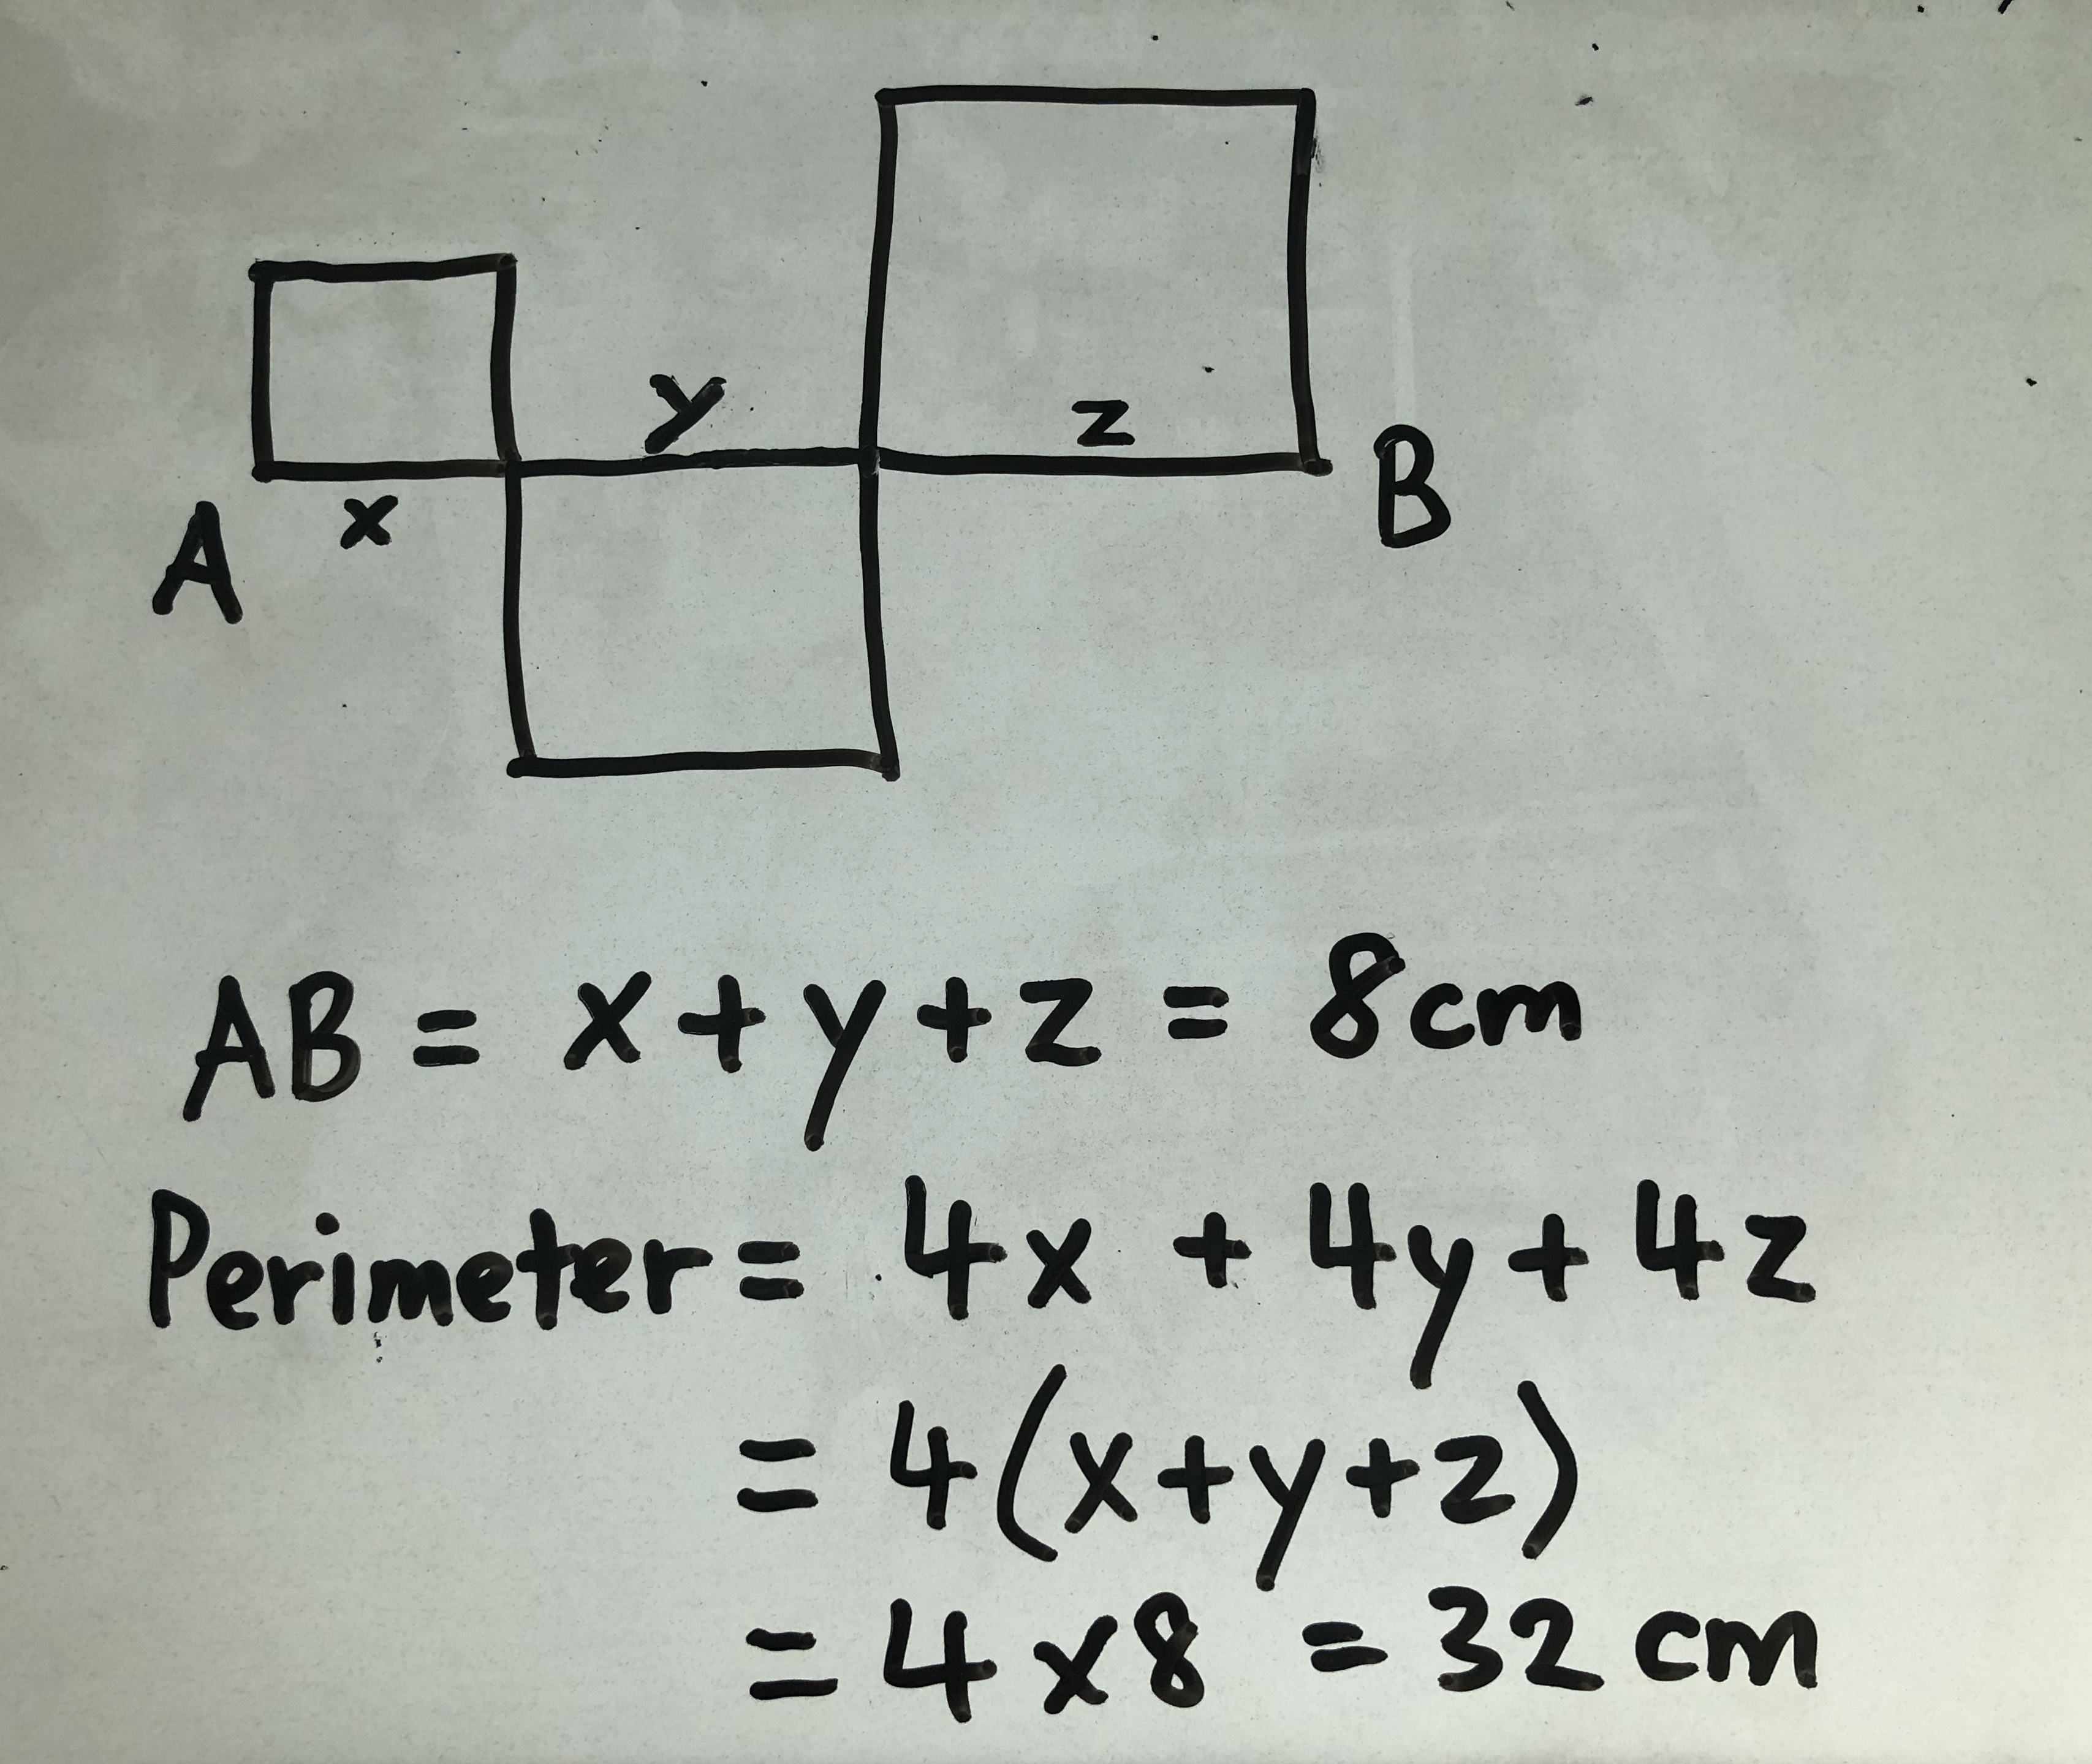 y
z
x
A
B
AB = x + y + z = 8cm
Perimeter = 4x + 4y + 4z
= 4(x+y+z)
= 4 x 8 = 32 cm